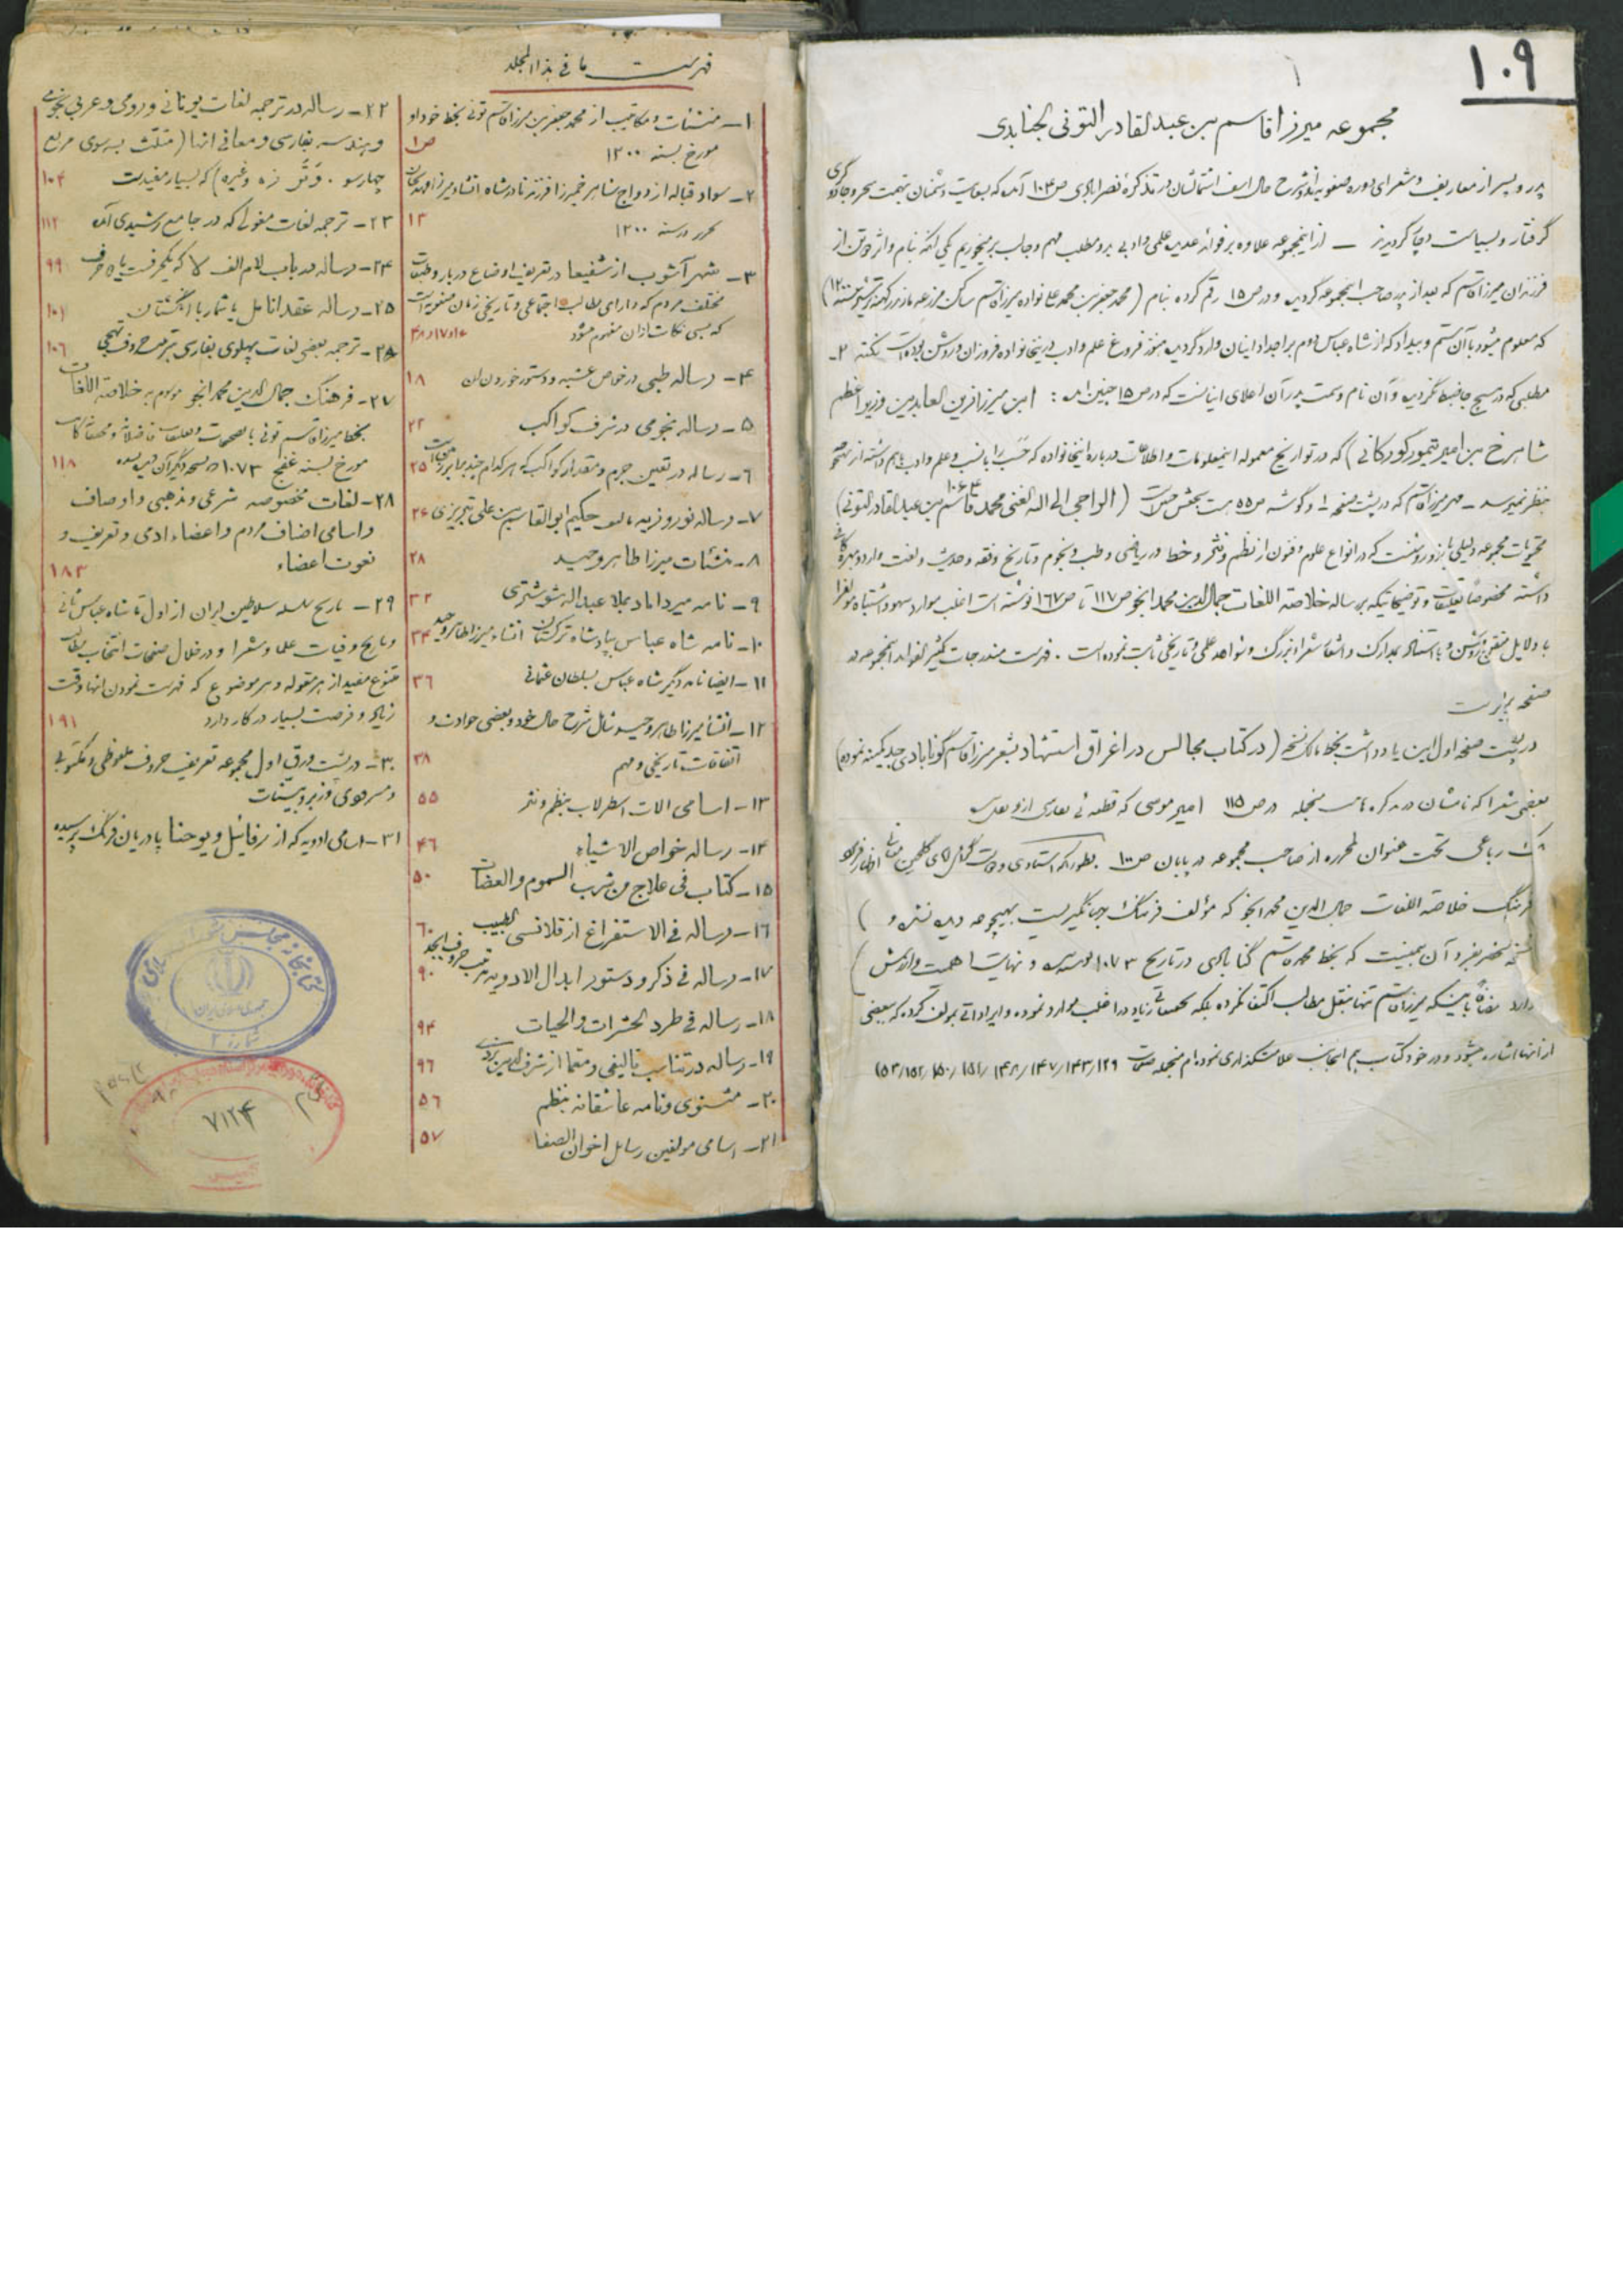 ۱۰۹
مجموعه میرزا قاسم بن عبدالقادر التونی الجنابدی
پدر و پسر از معاریف و شعرای دوره صفویه شرح حال در تذکرهٔ نصرابادی ص ۱۰۳ که دشمنان بتهمت سحر و جادوگری
گرفتار و بسیاست دچار گردید – از اینمجموعه علاوه بر فوائد عدیده علمی و ادبی بدو مطلب مهم و جالب برمیخوریم یکی آنکه بنام و اثر
فرزندان میرزا قاسم که بعد از پدر صاحب اینمجموعه گردیده و در ص ۱۵ رقم کرده بنام (محمد جعفر بن محمد میرزا قاسم ساکن مزرعه ۱۲۰۰)
که معلوم میشود با آن ستم و بیداد که از شاه عباس دوم بر اجداد اینان وارد گردیده هنوز فروغ علم و ادب در اینخانواده فروزان و روشن بوده نکته ۲ـ
مطلبی که در هیچ جا ضبط نگردیده و آن نام و سمت پدران اعلای اینانست که در ص ۱۵ چنین : ابن میرزا زین العابدین وزیر اعظم
شاهرخ بن امیر تیمور گورکانی) که در تواریخ معموله اینمعلومات و اطلاعات درباره اینخانواده که حسب را با نسب و علم و ادب باهم داشته از
بنظر نمیرسد ـ مهر میرزا قاسم که در پشت صفحه ۱ و گوشه ص ۵۵ هست (الراجی الی الله الغنی محمد قاسم بن عبدالقادر التونی) ۱۰۶۴
محتویات مجموعه دلیلی بارز و روشنست که در انواع علوم و فنون از نظم و نثر و خط و ریاضی و طب و نجوم و تاریخ و فقه و حدیث و لغت وارد و بهره
داشته مخصوصاً تعلیقات و توضیحاتیکه بر رساله خلاصة اللغات جمال الدین محمد انجو ص ۱۱۷ تا ص ۱۶۷ نوشته است اغلب موارد سهو و اشتباه مؤلف را
با دلایل متقن و روشن و با استناد بمدارک و اشعار شعراء بزرگ و شواهد علمی و تاریخی ثابت نموده است . فهرست مندرجات کثیر الفواید اینمجموعه در
صفحه برابر است
در پشت صفحه اول این یادداشت بخط مالک نسخه (در کتاب مجالس در اغراق استشهاد بشعر میرزا قاسم گونابادی جد کمینه نموده)
بعضی شعرا که نامشان در منجمله در ص ۱۱۵ امیر موسی که قطعه
رباعی تحت عنوان لمحرره از صاحب مجموعه در پایان ص ۱۰۰
فرهنگ خلاصة اللغات جمال الدین محمد انجو که مؤلف فرهنگ جهانگیریست بهیچوجه دیده نشده و
نسخه منحصر بفرد آن همینست که بخط محمد قاسم گنابادی در تاریخ ۱۰۷۳ و نهایت اهمیت و ارزش
دارد باینکه میرزا قاسم تنها بنقل مطالب اکتفا نکرده بلکه زیاد در اغلب موارد نموده و ایراداتی بمولف کرده که ببعضی
از آنها اشاره میشود و در خود کتاب هم اینجانب علامتگذاری نموده‌ام منجمله صفحات ۱۲۹ / ۱۴۳ / ۱۴۷ / ۱۴۸ / ۱۵۱ / ۱۵۰ / ۱۵۲ / ۱۵۳)
فهرست ما فی هذا المجلد
۱ــ منشئات و مکاتیب از محمد جعفر بن میرزا قاسم تونی بخط خود او
مورخ بسنه ۱۲۰۰ ص ۱
۲ــ سواد قباله ازدواج شاهرخ میرزا فرزند نادرشاه انشاء میرزا مهدیخان
محرر در سنه ۱۲۰۰ ۱۳
۳ــ شهرآشوب از شفیعا در تعریف اوضاع دربار و طبقات
مختلف مردم که دارای مطالب اجتماعی و تاریخی زمان صفویه است
که بسی نکات از آن مفهوم میشود ۱۶و۱۷و۴۸
۴ــ رساله طبی در خواص عشبه و دستور خوردن آن ۱۸
۵ــ رساله نجومی در شرف کواکب ۲۲
۶ــ رساله در تعیین جرم و مقدار کواکب که هر کدام چند برابر زمین است ۲۵
۷ــ رساله نوروزیه تالیف حکیم ابوالقاسم بن علی تبریزی ۲۶
۸ــ منشئات میرزا طاهر وحید ۲۸
۹ــ نامه میرداماد بملا عبدالله شوشتری ۳۲
۱۰ــ نامه شاه عباس بپادشاه ترکستان انشاء میرزا طاهر وحید ۳۴
۱۱ــ ایضا نامه دیگر شاه عباس بسلطان عثمانی ۳۶
۱۲ــ انشاء میرزا طاهر وحید شامل شرح حال خود و بعضی حوادث و
اتفاقات تاریخی و مهم ۳۸
۱۳ــ اسامی الات اسطرلاب بنظم و نثر ۵۵
۱۴ــ رساله خواص الاشیاء ۴۶
۱۵ــ کتاب فی علاج من شرب السموم و العضات ۵۰
۱۶ــ رساله فی الاستفراغ از قلانسی طبیب ۶۰
۱۷ــ رساله فی ذکر و دستور ابدال الادویه بترتیب حروف ابجد ۹۰
۱۸ــ رساله فی طرد الحشرات و الحیات ۹۴
۱۹ــ رساله در تناسب تالیفی و معما از شرف الدین یزدی ۹۶
۲۰ــ مثنوی و نامه عاشقانه بنظم ۵۶
۲۱ــ اسامی مولفین رسایل اخوان الصفا ۵۷
۲۲ــ رساله در ترجمه لغات یونانی و رومی و عربی نجومی
و هندسه بفارسی و معانی آنها (مثلث سه‌سوی مربع
چهارسو . وتر زه و غیره) که بسیار مفیدست ۱۰۴
۲۳ــ ترجمه لغات مغولی که در جامع رشیدی آمده ۱۱۲
۲۴ــ رساله در باب لام الف لا که یکحرفست یا دو حرف ۹۹
۲۵ــ رساله عقد انامل یا شمار با انگشتان ۱۰۱
۲۶ــ ترجمه بعضی لغات پهلوی بفارسی بترتیب حروف تهجی ۱۰۶
۲۷ــ فرهنگ جمال الدین محمد انجو موسوم به خلاصة اللغات
بخط میرزا قاسم تونی با تصحیحات و تعلیقات فاضلانه و محققانه
مورخ بسنه ۱۰۷۳ که نسخه دیگر آن دیده نشده ۱۱۸
۲۸ــ لغات مخصوصه شرعی و مذهبی و اوصاف
و اسامی اصناف مردم و اعضاء ادمی و تعریف و
نعوت اعضاء ۱۸۳
۲۹ــ تاریخ سلسله سلاطین ایران از اول تا شاه عباس ثانی
و تاریخ وفیات علما و شعرا و در خلال صفحات انتخاب مطالب
متنوع مفید از هر مقوله و هر موضوع که فهرست نمودن انها وقت
زیاد و فرصت بسیار در کار دارد ۱۹۱
۳۰ــ در پشت ورق اول مجموعه تعریف حروف ملفوظی و مکتوبی
و مسروری و زبر و بینات
۳۱ــ اسامی ادویه که از رفائیل و یوحنا پادریان فرنگ پرسیده
کتابخانه مجلس شورای اسلامی
جمهوری اسلامی ایران
شماره ۲
۷۱۲۴